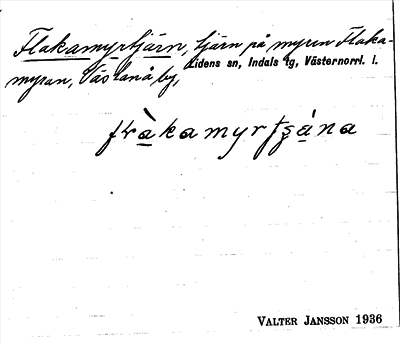 Flakamyrtjärn, tjärn på myren Flaka-
Lidens sn, Indals tg, Västernorrl. l.
myran, Västanå by,
fràkamyrtşána
VALTER JANSSON 1936